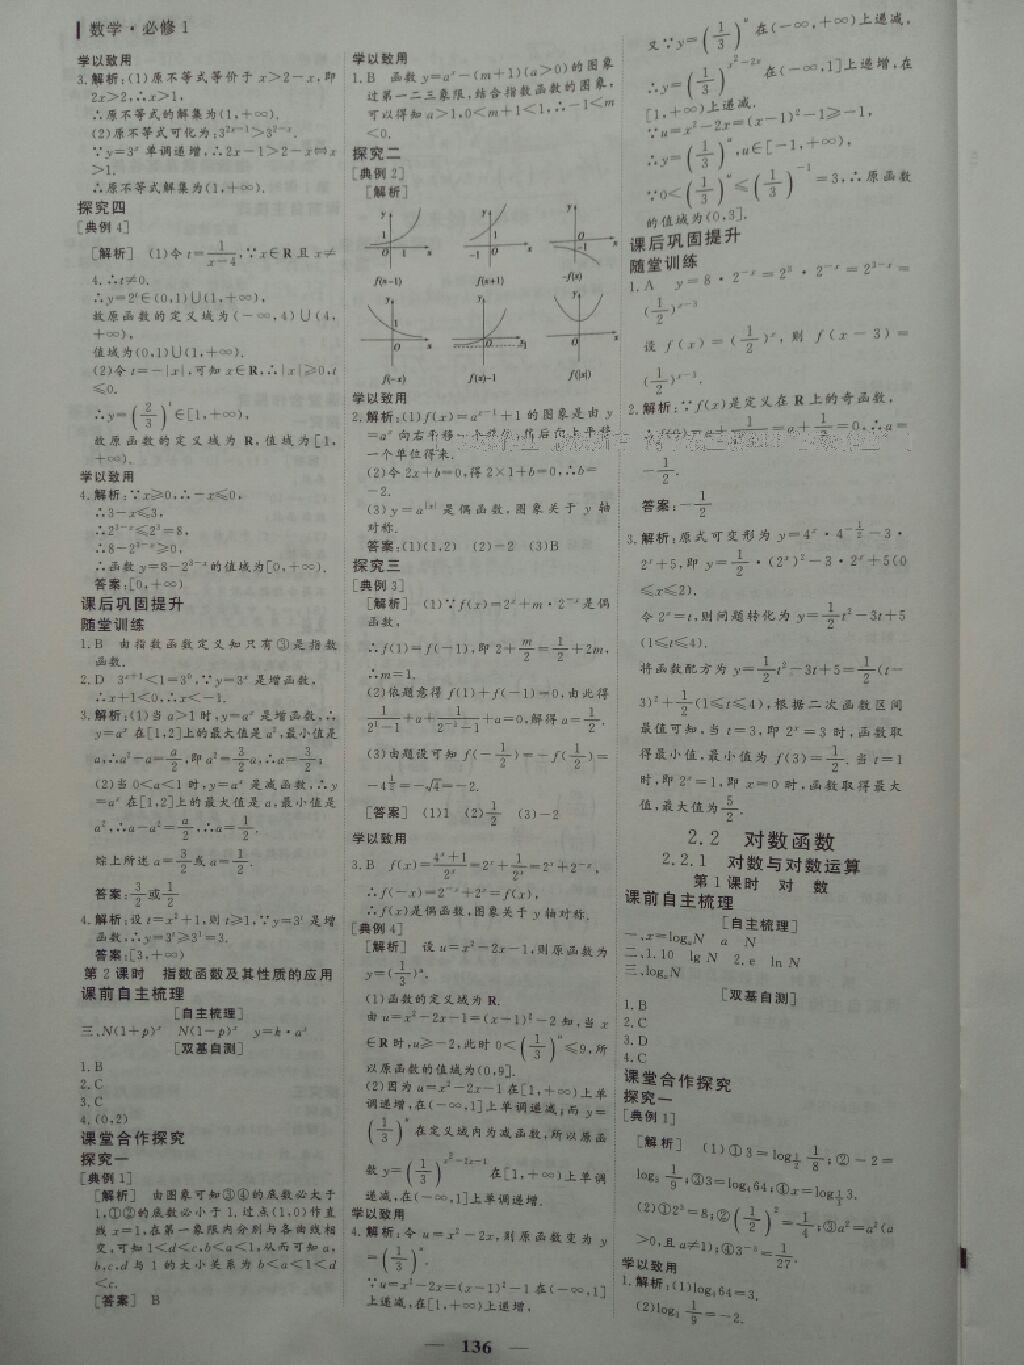 数学·必修1
学以致用
3.解析:(1)原不等式等价于x>2-x,即
2x>2,∴x>1,
∴原不等式的解集为(1,+∞).
(2)原不等式可化为:3^{2x-1}>3^{2-x}.
∵y=3^x 单调递增,∴2x-1>2-x⇔x
>1.
∴原不等式解集为(1,+∞).
探究四
[典例4]
[解析] (1)令t=1/(x-4),∵x∈R且x≠
4,∴t≠0.
∴y=2^t∈(0,1)∪(1,+∞),
故原函数的定义域为(-∞,4)∪(4,
+∞),
值域为(0,1)∪(1,+∞).
(2)令t=-|x|,可知x∈R,∴|x|≥0,t
≤0.
∴y=(2/3)^t∈[1,+∞),
故原函数的定义域为R,值域为[1,
+∞).
学以致用
4.解析:∵x≥0,∴-x≤0,
∴3-x≤3,
∴2^{3-x}≤2^3=8,
∴8-2^{3-x}≥0,
∴函数y=8-2^{3-x}的值域为[0,+∞).
答案:[0,+∞)
课后巩固提升
随堂训练
1.B 由指数函数定义知只有③是指数
函数.
2.D 3^{x+1}<1=3^0,∵y=3^x 是增函数,
∴x+1<0,∴x<-1.
3.解析:(1)当a>1时,y=a^x 是增函数,∴
y=a^x 在[1,2]上的最大值是a^2,最小值是
a,∴a^2-a=a/2,即a^2=3/2 a,∴a=3/2;
(2)当0<a<1时,y=a^x 是减函数,∴y
=a^x 在[1,2]上的最大值是a,最小值是
a^2,∴a-a^2=a/2,∴a=1/2.
综上所述a=3/2或a=1/2.
答案:3/2或1/2
4.解析:设t=x^2+1,则t≥1,∵y=3^t 是增
函数,∴y=3^t≥3^1=3.
答案:[3,+∞)
第2课时 指数函数及其性质的应用
课前自主梳理
[自主梳理]
三、N(1+p)^x N(1-p)^x y=k·a^x
[双基自测]
1.B
2.C
3.C
4.(0,2)
课堂合作探究
探究一
[典例1]
[解析] 由图象可知③④的底数必大于
1,①②的底数必小于1.过点(1,0)作直
线x=1,在第一象限内分别与各曲线相
交,可知1<d<c,b<a<1,从而可知a,
b,c,d与1的大小关系为b<a<1<d
<c.
[答案] B
学以致用
1.B 函数y=a^x-(m+1)(a>0)的图象
过第一二三象限,结合指数函数的图象,
可以得知a>1,0<m+1<1,∴-1<m
<0.
探究二
[典例2]
[解析]
f(x-1) f(x+1) -f(x)
f(-x) f(x)-1 f(|x|)
学以致用
2.解析:(1)f(x)=a^{x-1}+1的图象是由y
=a^x 向右平移一个单位,然后向上平移
一个单位得来.
(2)令2x+b=0,得2×1+b=0,∴b=
-2.
(3)y=a^{|x|}是偶函数,图象关于y轴
对称.
答案:(1)(1,2) (2)-2 (3)B
探究三
[典例3]
[解析] (1)∵f(x)=2^x+m·2^{-x}是偶
函数,
∴f(1)=f(-1),即2+m/2=1/2+2m,
∴m=1.
(2)依题意得f(1)+f(-1)=0,由此得
1/(2^1-1)+a+1/(2^{-1}-1)+a=0,解得a=1/2.
(3)由题设可知f(-1/2)=-f(1/2)=
-4^{1/2}=-√4=-2.
[答案] (1)1 (2)1/2 (3)-2
学以致用
3.B f(x)=(4^x+1)/2^x=2^x+1/2^x=2^x+2^{-x},
∴f(-x)=2^{-x}+2^x=f(x),
∴f(x)是偶函数,图象关于y轴对称.
[典例4]
[解析] 设u=x^2-2x-1,则原函数为
y=(1/3)^u.
(1)函数的定义域为R.
由u=x^2-2x-1=(x-1)^2-2知,当x
∈R时,u≥-2,此时0<(1/3)^u≤9,所
以原函数的值域为(0,9].
(2)因为u=x^2-2x-1在[1,+∞)上单
调递增,在(-∞,1]上单调递减;而y=
(1/3)^u在定义域内为减函数,所以原函
数y=(1/3)^{x^2-2x-1}在[1,+∞)上单调
递减,在(-∞,1]上单调递增.
学以致用
4.解析:令u=x^2-2x,则原函数变为y
=(1/3)^u.
∵u=x^2-2x=(x-1)^2-1在(-∞,1]
上递减,在[1,+∞)上递增,
又∵y=(1/3)^u在(-∞,+∞)上递减,
∴y=(1/3)^{x^2-2x}在(-∞,1]上递增,在
[1,+∞)上递减.
∵u=x^2-2x=(x-1)^2-1≥-1,
∴y=(1/3)^u,u∈[-1,+∞),
∵0<(1/3)^u≤(1/3)^{-1}=3,∴原函数
的值域为(0,3].
课后巩固提升
随堂训练
1.A y=8·2^{-x}=2^3·2^{-x}=2^{3-x}=
(1/2)^{x-3}
设f(x)=(1/2)^x,则f(x-3)=
(1/2)^{x-3}.
2.解析:∵f(x)是定义在R上的奇函数,
=a+1/2=0,∴a=
-1/2.
答案:-1/2
3.解析:原式可变形为y=4^x·4^{-1/2}-3·
2^x+5,即y=1/2·(2^x)^2-3·2^x+5(0
≤x≤2),
令2^x=t,则问题转化为y=1/2 t^2-3t+5
(1≤t≤4),
将函数配方为y=1/2 t^2-3t+5=1/2(t-
3)^2+1/2(1≤t≤4),根据二次函数区间
最值可知,当t=3,即2^x=3时,函数取
得最小值,最小值为f(3)=1/2.当t=1
时,即2^x=1,即x=0时,函数取得最大
值,最大值为5/2.
2.2 对数函数
2.2.1 对数与对数运算
第1课时 对 数
课前自主梳理
[自主梳理]
一、x=log_a N a N
二、1.10 lg N 2.e ln N
三、log_a N
[双基自测]
1.B
2.C
3.D
4.C
课堂合作探究
探究一
[典例1]
[解析] (1)①3=log_{1/2} 1/8;②-2=
log_3 1/9;③3=log_4 64;④x=log_{1/3} 3.
(2)①2^3=8;②(1/2)^2=1/4;③a^2=a^2(a
>0,且a≠1);④3^{-3}=1/27.
学以致用
1.解析:(1)log_4 64=3.
(2)log_3 1/9=-2.
— 136 —